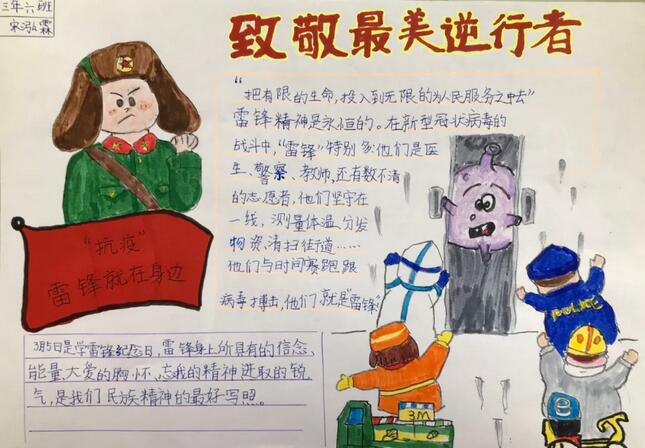 三年六班
宋泓霖
致敬最美逆行者
“把有限的生命,投入到无限的为人民服务之中去”
雷锋精神是永恒的。在新型冠状病毒的
战斗中,“雷锋”特别多:他们是医
生、警察、教师,还有数不清
的志愿者,他们坚守在
一线,测量体温、分发
物资、清扫街道……
他们与时间赛跑,跟
病毒搏击,他们就是“雷锋”
“抗疫”
雷锋就在身边
3月5日是学雷锋纪念日,雷锋身上所具有的信念、
能量、大爱的胸怀、忘我的精神、进取的锐
气,是我们民族精神的最好写照。
POLICE
3M
e